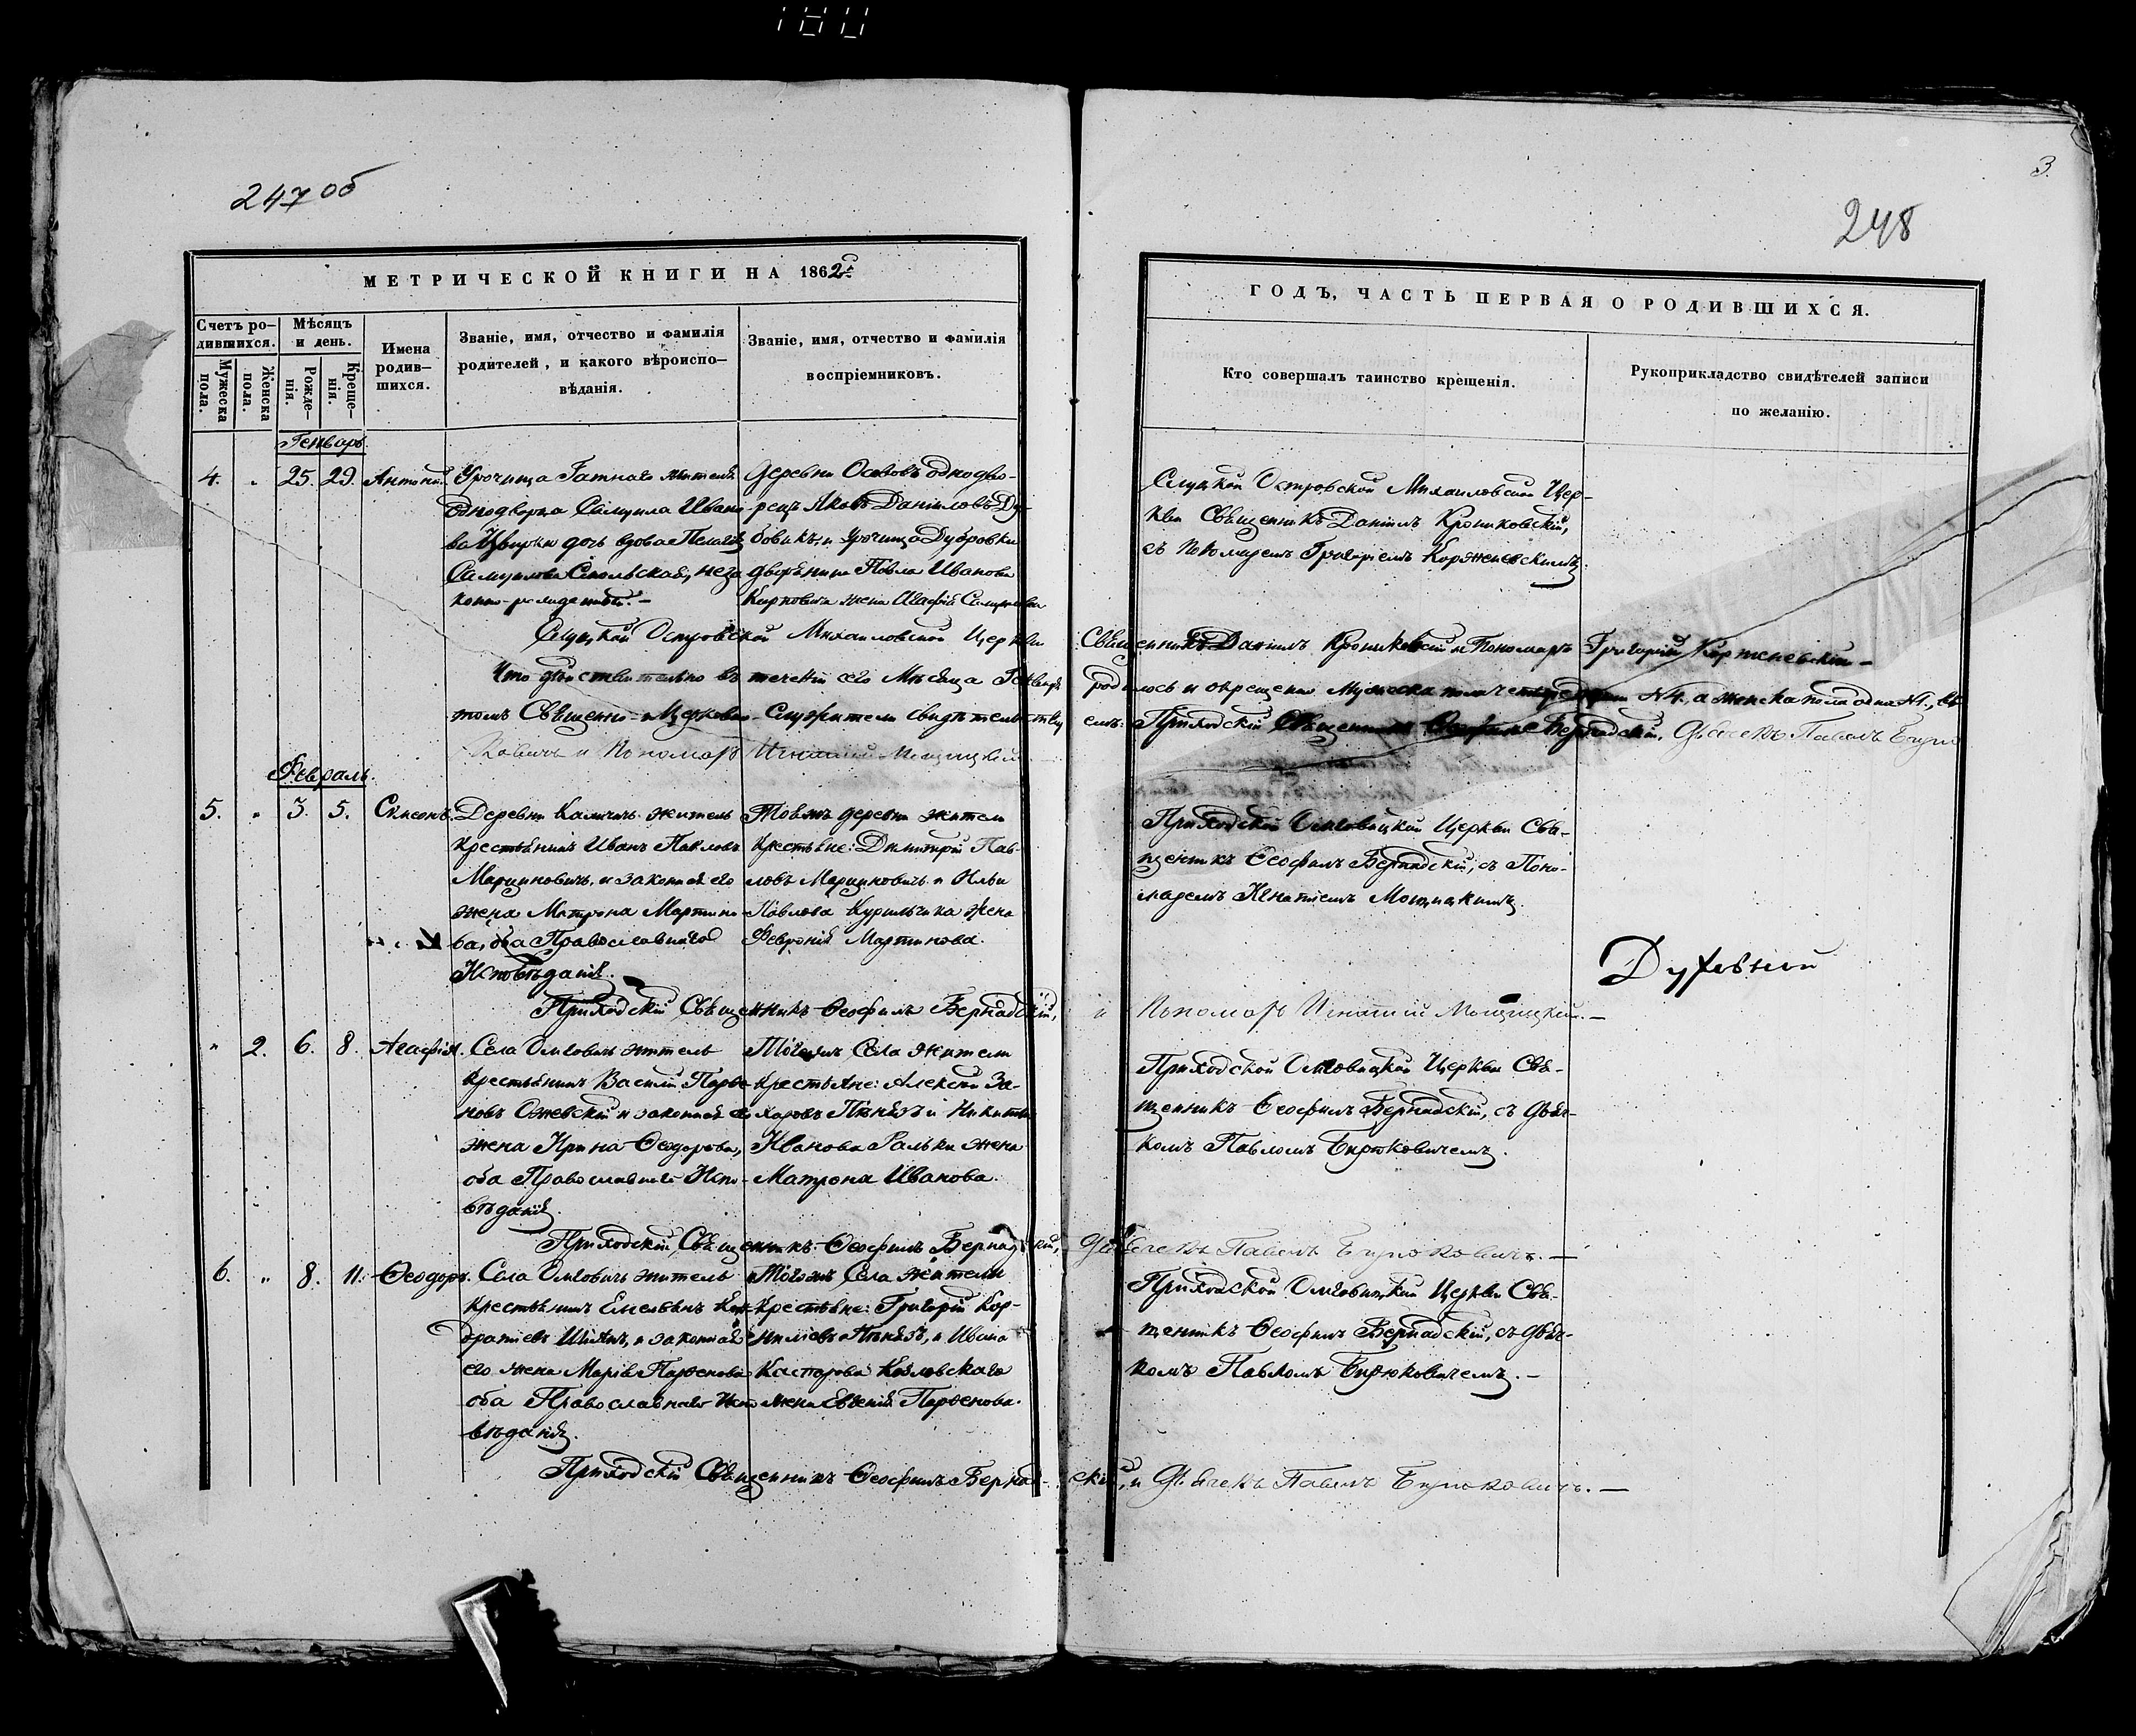 180
247 об
3.
248
МЕТРИЧЕСКОЙ КНИГИ НА 1862й
ГОДЪ, ЧАСТЬ ПЕРВАЯ О РОДИВШИХСЯ.
Счетъ ро-
дившихся.
Мужеска
пола.
Женска
пола.
Мѣсяцъ
и день.
Рожде-
нія.
Креще-
нія.
Имена
родив-
шихся.
Званіе, имя, отчество и фамилія
родителей, и какого вѣроиспо-
вѣданія.
Званіе, имя, отчество и фамилія
воспріемниковъ.
Кто совершалъ таинство крещенія.
Рукоприкладство свидѣтелей записи
по желанію.
Генварь.
4. " 25. 29. Антоній.
Урочища Гатнаго жителя
однодворца Самуила Ивано-
ва Цвирки дочь вдова Пелагія
Самуилова незо
конно-
Деревни однодво-
рецъ Яковъ Даніиловъ Ду-
бовикъ, и Урочища Дубровки
дворянина Павла Иванова
жена Агафія Самуилова
Слуцкой Островской Михаиловской Цер-
кви Священникъ Даніилъ Крониковскій,
съ Пономаремъ Григоріемъ Корженевскимъ.
Слуцкой Островской Михаиловской Церкви Священникъ Даніилъ Крониковскій и Пономарь Григорій Корженевскій —
Что дѣйствительно въ теченіи сего Мѣсяца Генваря родилось и окрещено Мужеска пола четыре N4., а женска пола одна N1., въ
томъ Священно-Церковно-Служители свидѣтельствуемъ: Приходскій Священникъ Ѳеофилъ Бернадскій, Дьячекъ Павелъ Бирю
ковичъ и Пономарь Игнатій Мощицкій
Февраль.
5. " 3. 5. Симеонъ.
Деревни Каличичъ житель
крестьянинъ Иванъ Павловъ
Марциновичъ, и законная его
жена Матрона Мартино-
ва, оба Православнаго
Исповѣданія.
Тояжъ деревни жители
крестьяне: Димитрій Пав-
ловъ Марциновичъ и Ильи
Павлова Курильчика жена
Февронія Мартинова.
Приходской Омговицкой Церкви Свя-
щенникъ Ѳеофилъ Бернадскій, съ Поно-
маремъ Игнатіемъ Мощицкимъ.
Духовный
Приходскій Священникъ Ѳеофилъ Бернадскій, и Пономарь Игнатій Мощицкій. —
" 2. 6. 8. Агафія.
Села Омговичъ житель
Крестьянинъ Василій Парѳе-
новъ Ожевскій и законная его
жена Ирина Ѳеодорова,
оба Православнаго Испо-
вѣданія.
Тогожъ Села жители
крестьяне: Алексій За-
харовъ Пѣнязь и Никиты
Иванова Ральки жена
Матрона Иванова.
Приходской Омговицкой Церкви Свя-
щенникъ Ѳеофилъ Бернадскій, съ дьяч-
комъ Павломъ Бирюковичемъ.
Приходскій Священникъ Ѳеофилъ Бернадскій, Дьячекъ Павелъ Бирюковичъ. —
6. " 8. 11. Ѳеодоръ.
Села Омговичъ житель
крестьянинъ Емельянъ Кон-
дратіевъ Шіянъ, и законная
его жена Марія Парѳенова
оба Православнаго Испо
вѣданія.
Тогожъ Села жители
крестьяне: Григорій Кор-
ниліевъ Пѣнязь, и Ивана
Касторова Козловскаго
жена Евгенія Парѳенова.
Приходской Омговицкой Церкви Свя-
щенникъ Ѳеофилъ Бернадскій, съ дьяч-
комъ Павломъ Бирюковичемъ. —
Приходскій Священникъ Ѳеофилъ Бернадскій, и Дьячекъ Павелъ Бирюковичъ. —